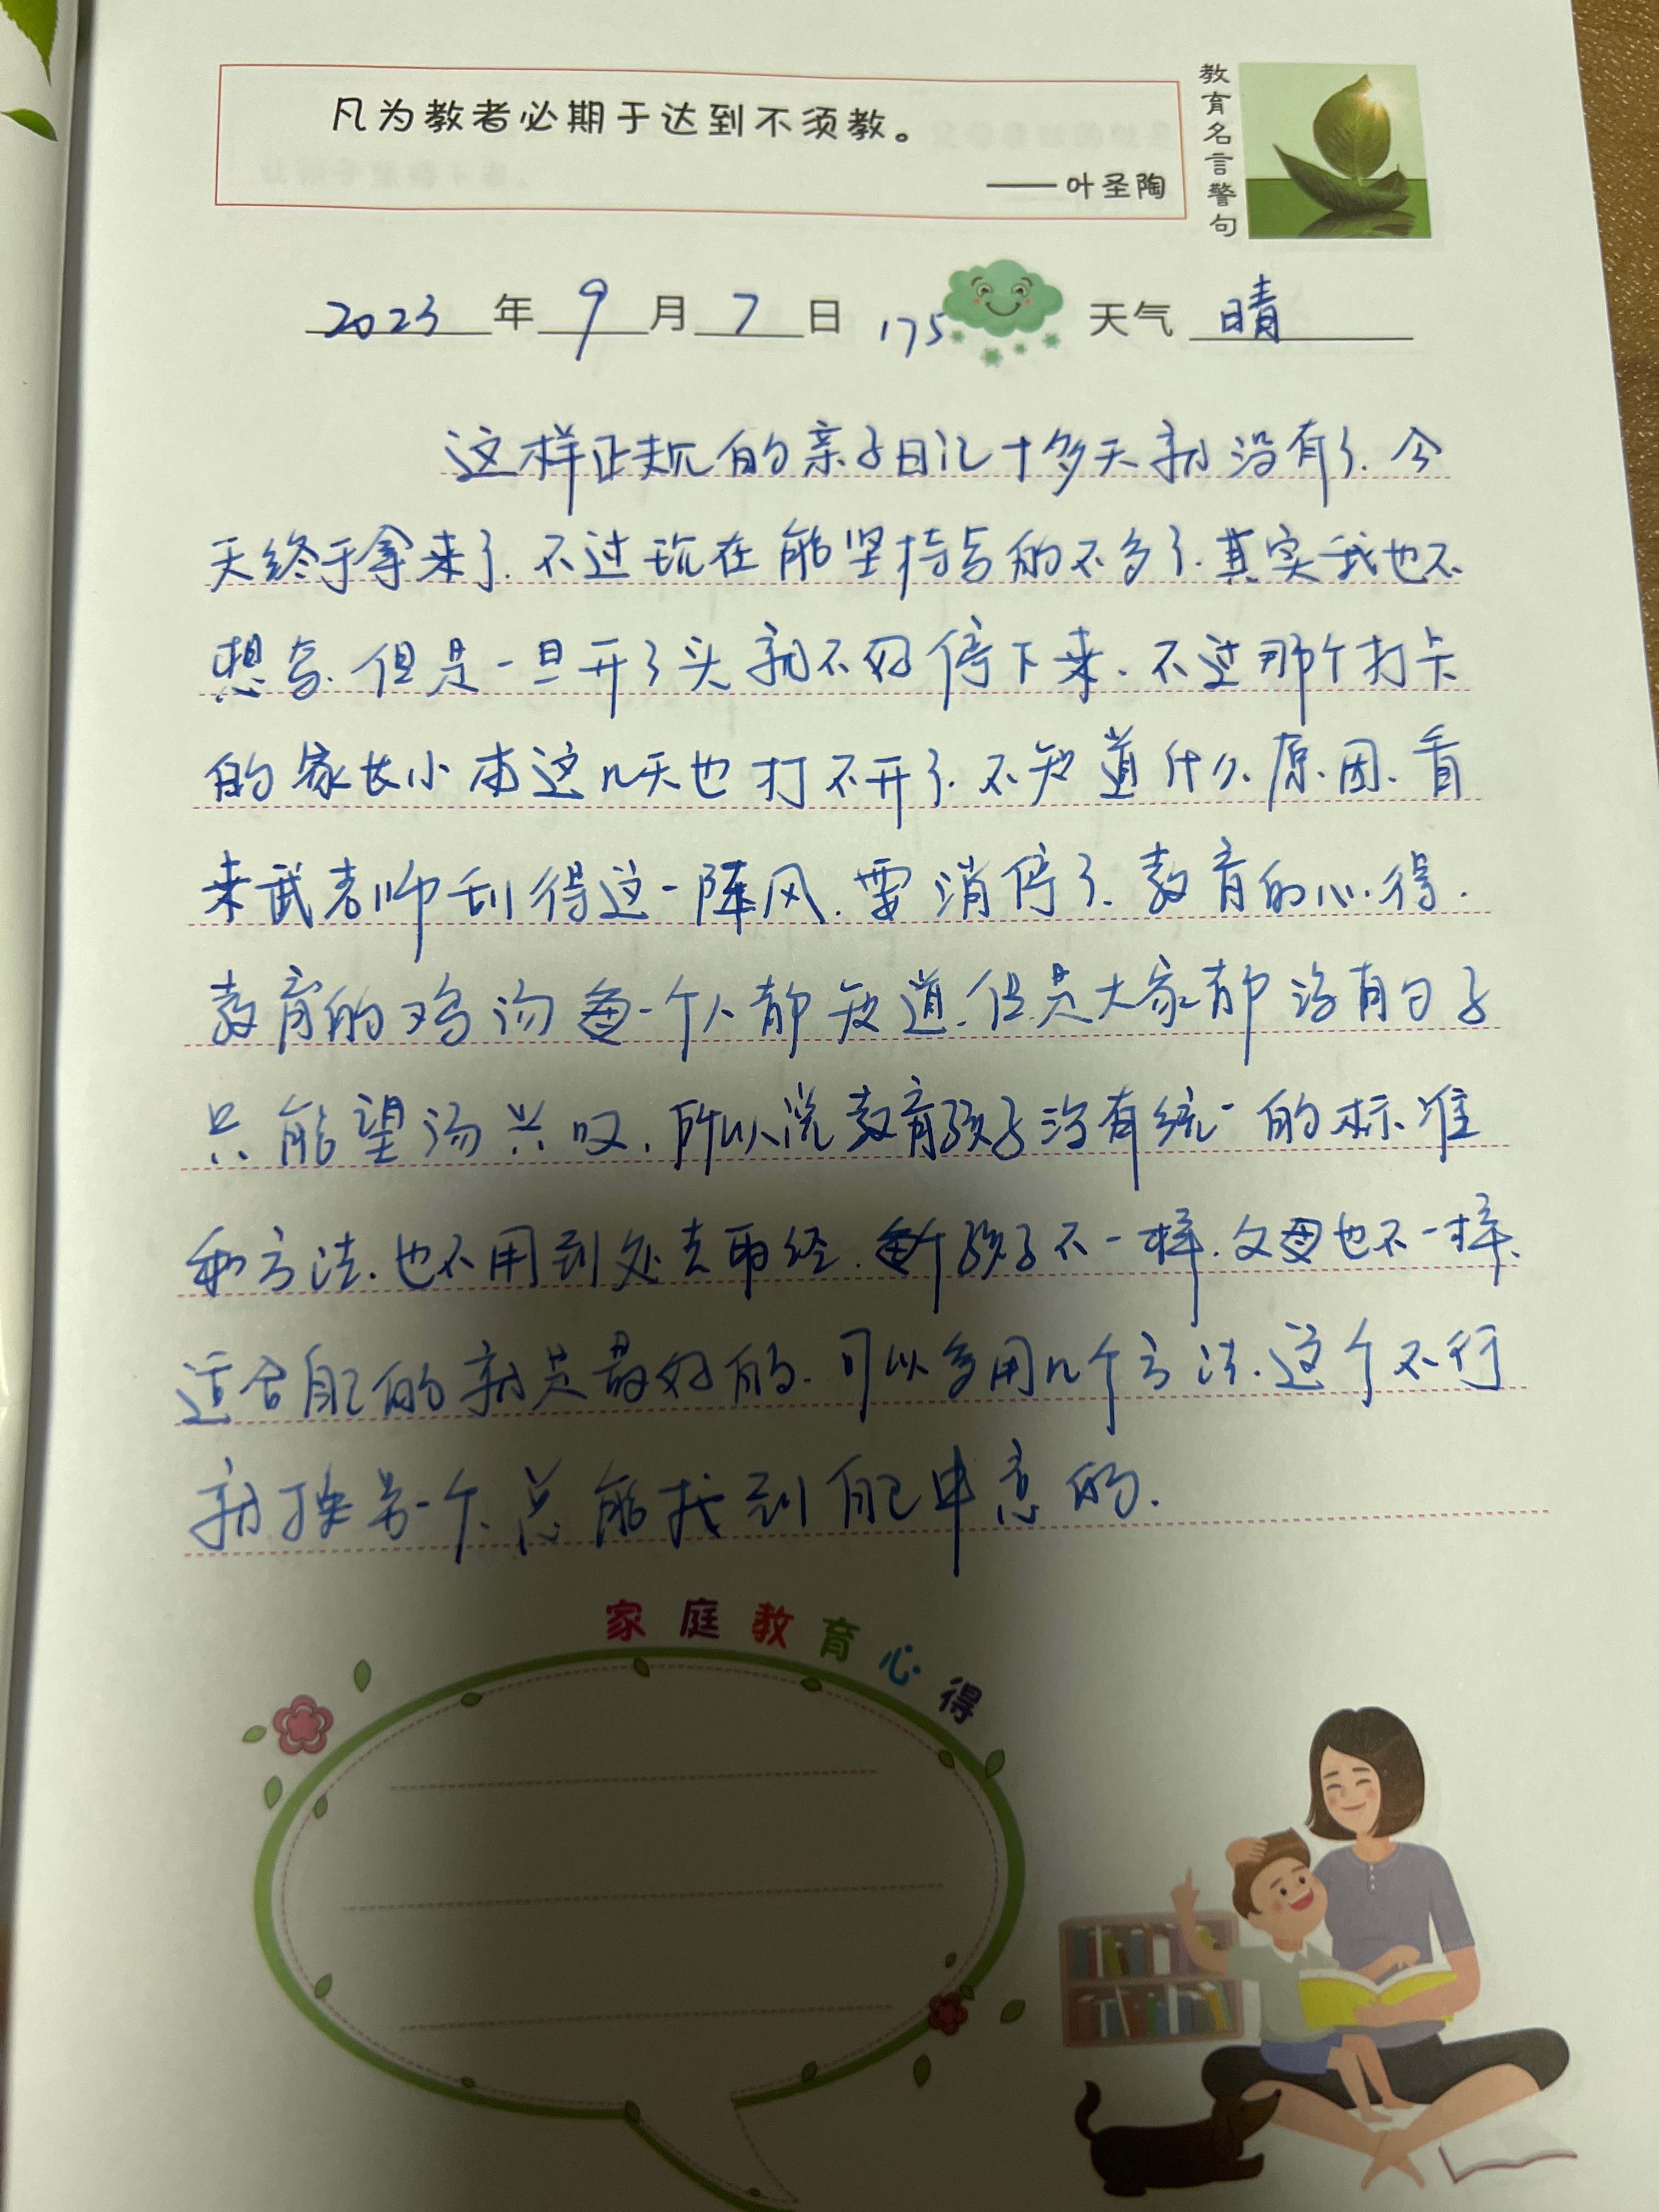 凡为教者必期于达到不须教。
——叶圣陶
教育名言警句
2023年9月7日 175 天气 晴
这样正规的亲子日记十多天就没有了.今
天终于拿来了.不过现在能坚持写的不多了.其实我也不
想写.但是一旦开了头就不好停下来.不过那个打卡
的家长小本这几天也打不开了.不知道什么原因.看
来武老师刮得这一阵风.要消停了.教育的心得.
教育的鸡汤每一个人都知道.但是大家都没有勺子
只能望汤兴叹.所以说教育孩子没有统一的标准
和方法.也不用到处去取经.每个孩子不一样.父母也不一样.
适合自己的就是最好的.可以多用几个方法.这个不行
就换另一个.总能找到自己中意的.
家庭教育心得